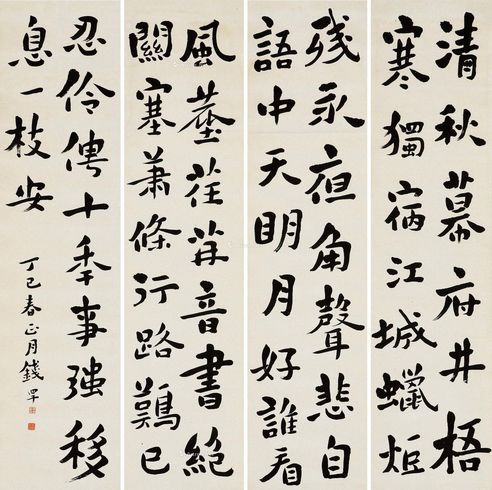 清秋幕府井梧
寒獨宿江城蠟炬
残永夜角聲悲自
語中天明月好誰看
風塵荏苒音書絕
關塞蕭條行路難已
忍伶俜十秊事强移
息一枝安
丁巳春正月錢罕